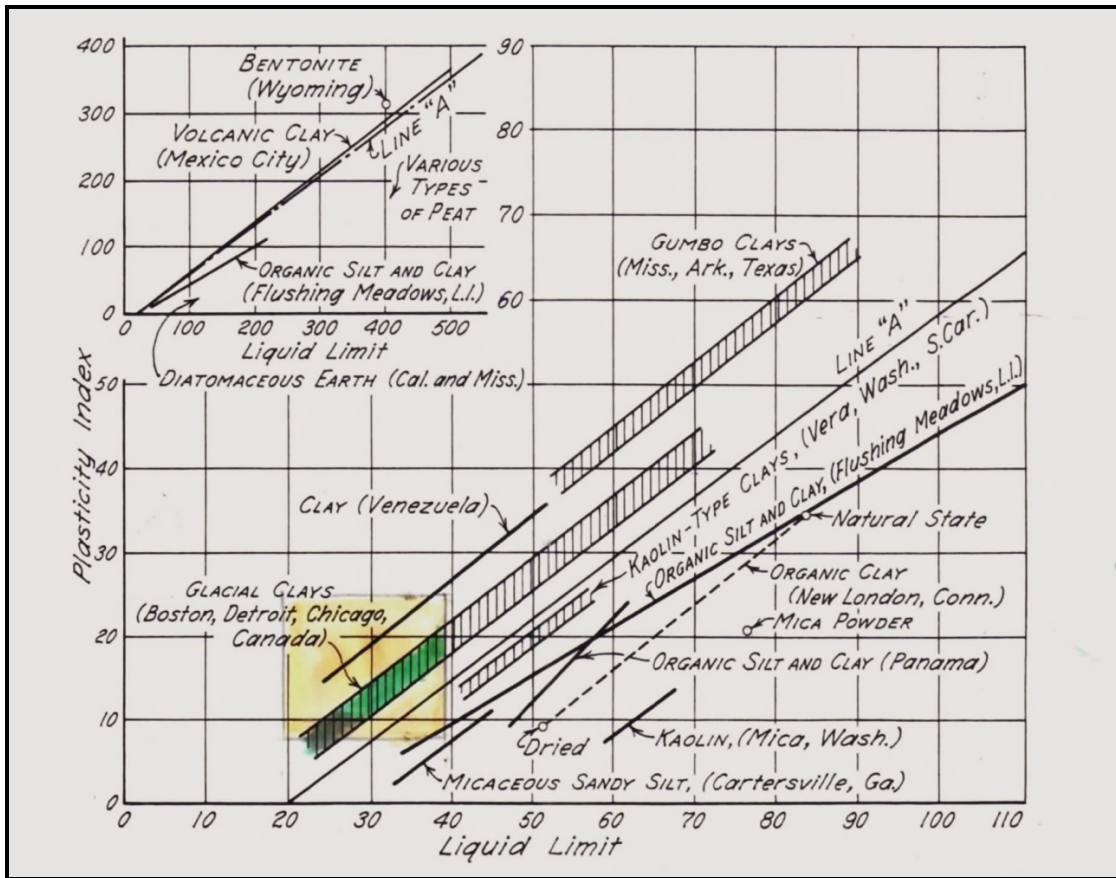 400
300
200
100
0
BENTONITE
(Wyoming)
VOLCANIC CLAY
(Mexico City)
LINE "A"
VARIOUS
TYPES
OF PEAT
ORGANIC SILT AND CLAY
(Flushing Meadows, L.I.)
100 200 300 400 500
Liquid Limit
DIATOMACEOUS EARTH (Cal. and Miss.)
90
80
70
60
50
40
30
20
10
0
Plasticity Index
GUMBO CLAYS
(Miss., Ark., Texas)
LINE "A"
KAOLIN-TYPE CLAYS, (Vera, Wash., S.Car.)
ORGANIC SILT AND CLAY, (Flushing Meadows, L.I.)
CLAY (Venezuela)
Natural State
GLACIAL CLAYS
(Boston, Detroit, Chicago,
Canada)
ORGANIC CLAY
(New London, Conn.)
MICA POWDER
ORGANIC SILT AND CLAY (Panama)
Dried
KAOLIN, (Mica, Wash.)
MICACEOUS SANDY SILT, (Cartersville, Ga.)
0 10 20 30 40 50 60 70 80 90 100 110
Liquid Limit